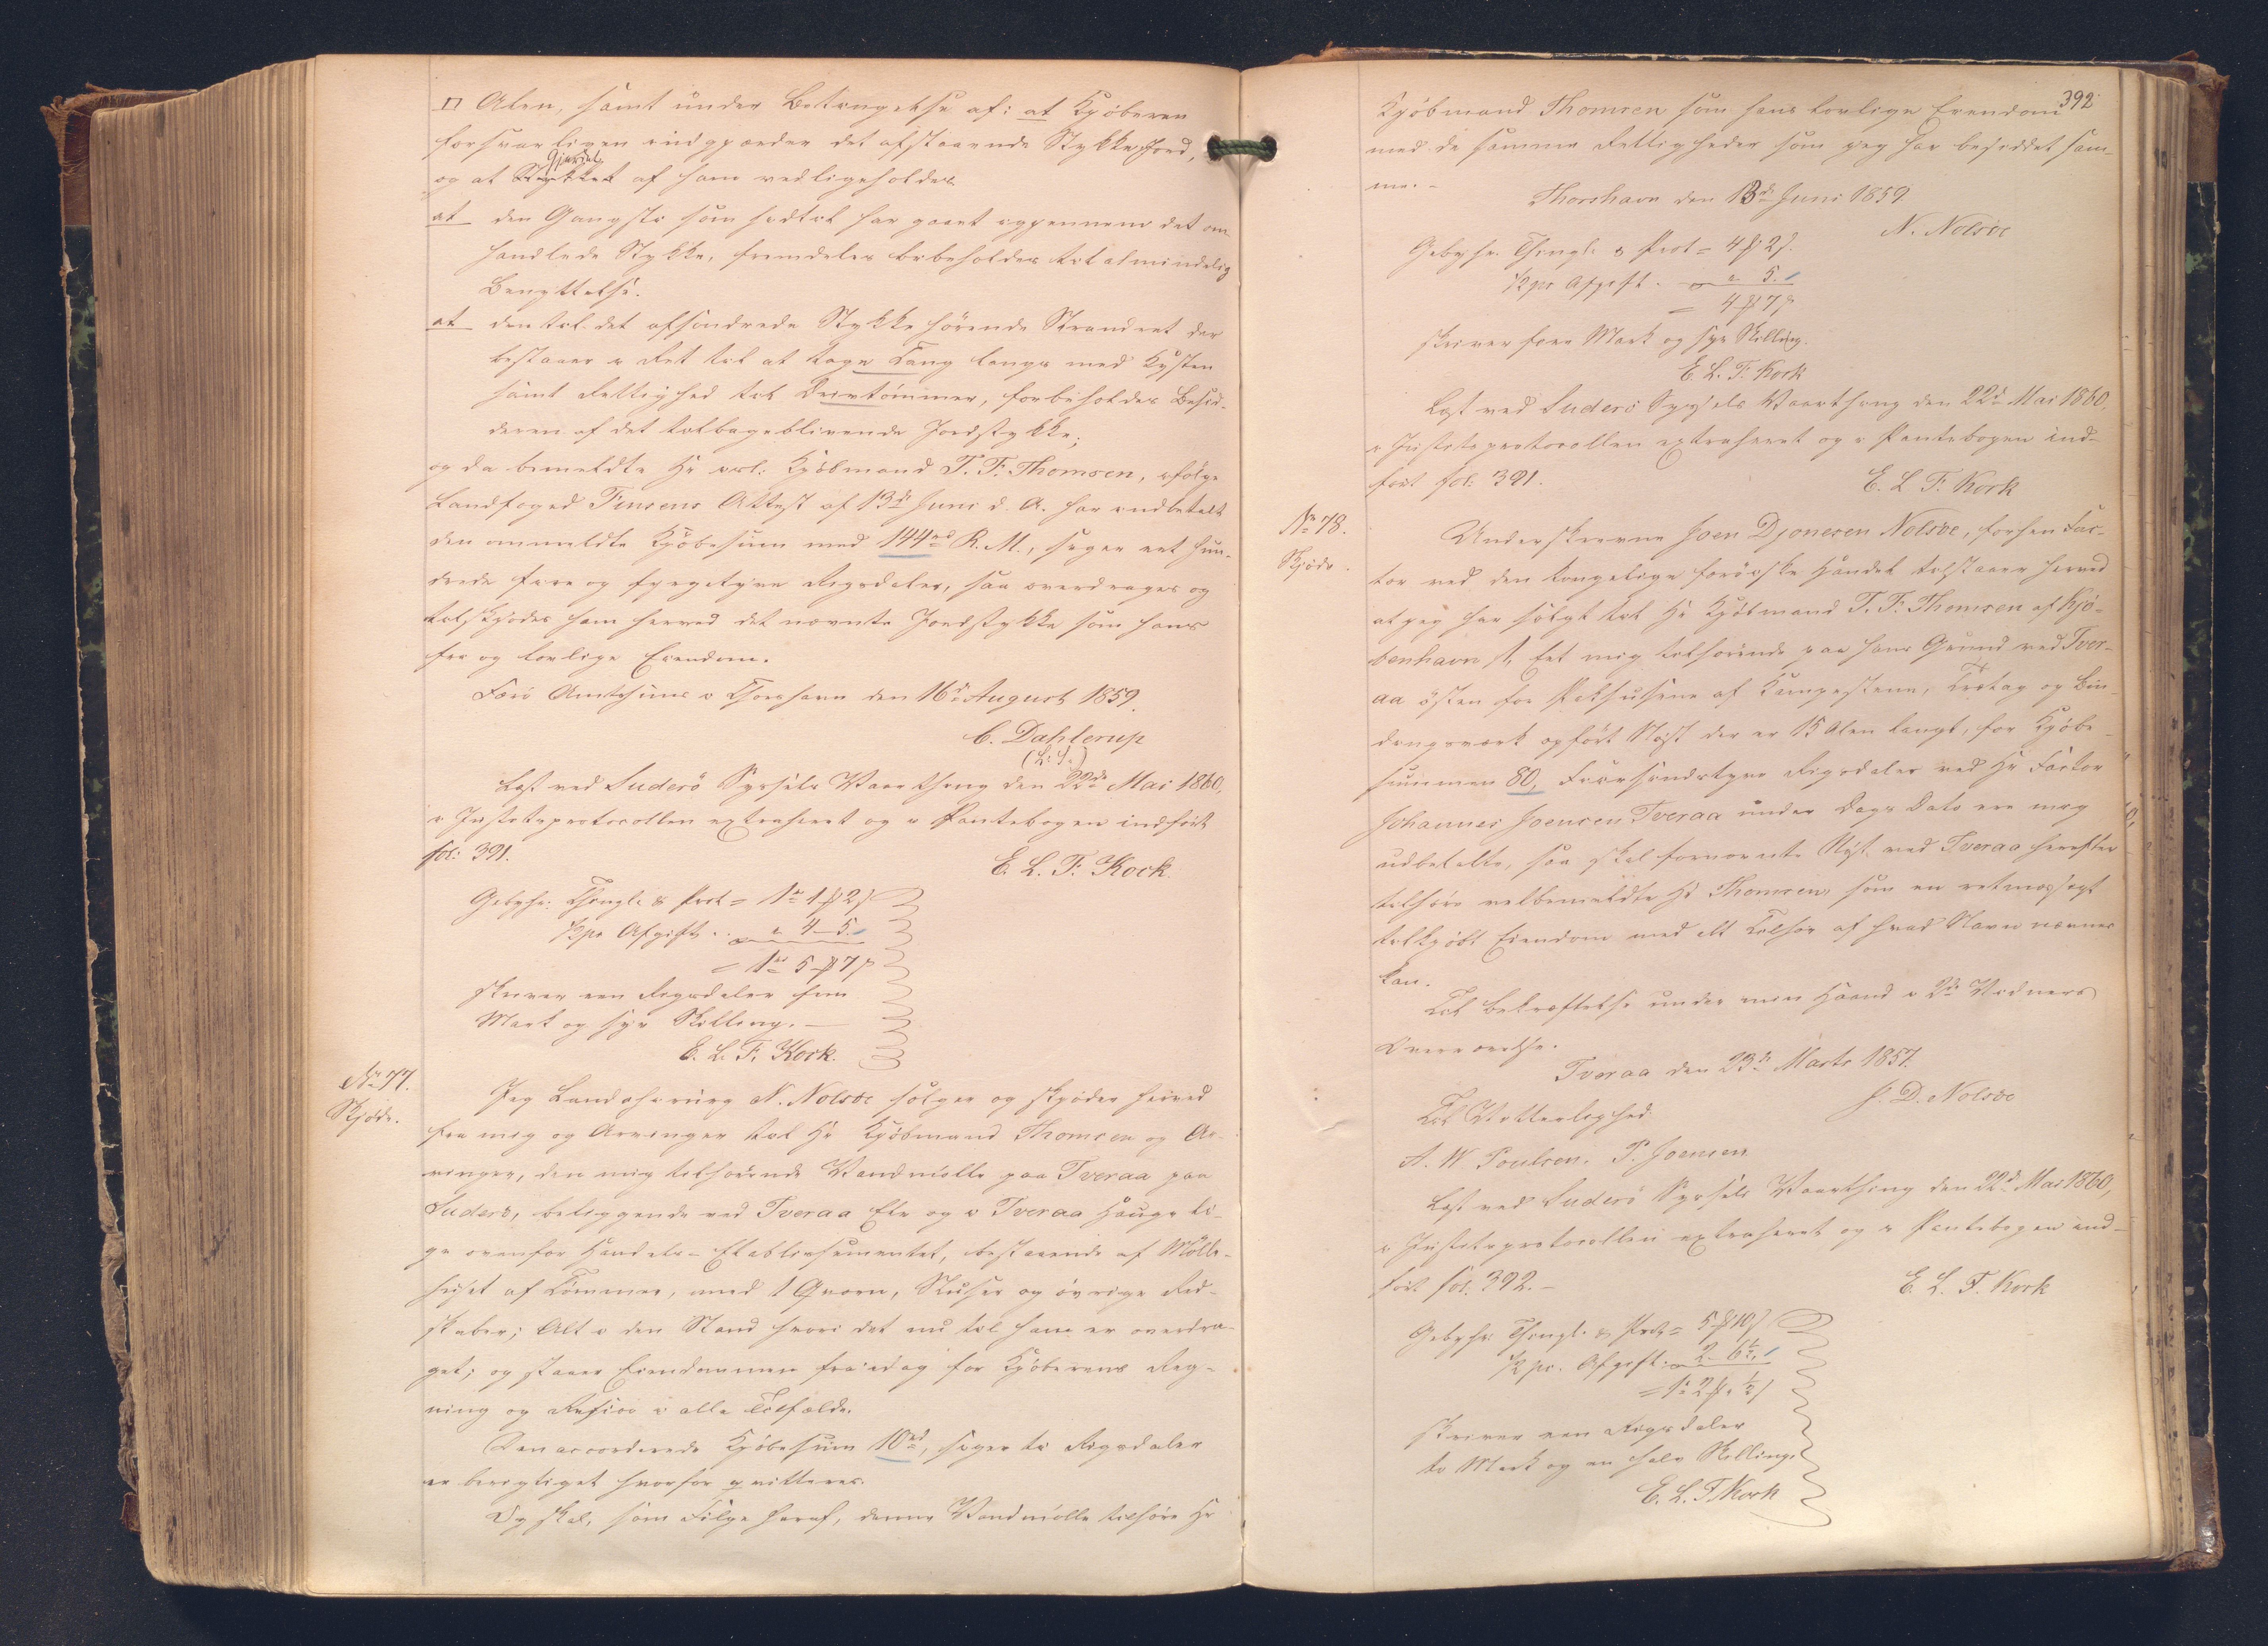 □ Alen, samt under Betingelse af: at Kjöberen
forsvarligen indgjærder det afstaaende Stykke Jord,
Gjærdet
og at Stykket af ham vedligeholdes
at den Gangsti som hidtil har gaaet igjennem det om-
handlede Stykke, fremdeles bibeholdes til almindelig
Benyttelse.
at den til det afsondrede Stykke hörende Strandret der
bestaaer i Ret til at tage Tang langs med Kysten
samt Rettighed til Drivtömmer, forbeholdes Besid-
deren af det tilbageblivende Jordstykke;
og da bemeldte Hr Kjöbmand T. F. Thomsen, ifölge
Landfoged Finsens Attest af 13de Juni d. A. har indbetalt
den ommeldte Kjöbesum med 144rd R. M., siger eet hun-
drede fire og fyrgetyve Rigsdaler, saa overdrages og
tilskjödes ham herved det nævnte Jordstykke som hans
frie og lovlige Eiendom.
Færö Amtshuus i Thorshavn den 16de August 1859.
C. Dahlerup
(L. S.)
Læst ved Suderö Syssels Vaarthing den 22de Mai 1860,
i Justitsprotocollen extraheret og i Pantebogen indfört
fol: 391.
E. L. F. Kock.
Gebyhr: Thingl. & Prot = 1rd 1 ₻ 2 ß
½ pc Afgift . . " 4 - 5.
= 1rd 5 ₻ 7 ß
skriver een Rigsdaler fem
Mark og syv Skilling. —
E. L. F. Kock.
No 77.
Skjöde.
Jeg Landchirurg N. Nolsöe sælger og skjöder herved
fra mig og Arvinger til Hr Kjöbmand Thomsen og Ar-
vinger, den mig tilhörende Vandmölle paa Tveraa paa
Suderö, beliggende ved Tveraa Elv og i Tveraa Hauge li-
ge ovenfor Handels-Etablissementet, bestaaende af Mölle-
huset af Tömmer, med 1 Qværn, Sluser og övrige Red-
skaber; Alt i den Stand hvori det nu til ham er overdra-
get; og staaer Eiendommen fra idag for Kjöberens Reg-
ning og Risico i alle Tilfælde.
Den accorderede Kjöbesum 10rd, siger ti Rigsdaler
er berigtiget hvorfor qvitteres.
Og skal, som Fölge heraf, denne Vandmölle tilhöre Hr
392
Kjöbmand Thomsen som hans lovlige Eiendom
med de samme Rettigheder som jeg har besiddet sam-
me. -
Thorshavn den 13de Juni 1859
N. Nolsöe
Gebyhr. Thingl. & Prot = 4 ₻ 2 ß.
½ pc Afgift . " 5.
= 4 ₻ 7 ß
skriver fire Mark og syv Skilling.
E. L. F. Kock
Læst ved Suderö Syssels Vaarthing den 22de Mai 1860,
i Justitsprotocollen extraheret og i Pantebogen ind-
fört fol: 391.
E. L. F. Kock
No 78.
Skjöde.
Underskrevne Joen Djonesen Nolsöe, forhen Fac-
tor ved den kongelige færöiske Handel tilstaaer herved
at jeg har solgt til Hr Kjöbmand T. F. Thomsen af Kjö-
benhavn 1, Eet mig tilhörende paa hans Grund ved Tver-
aa östen for Pakhusene af Kampesteen, Tretag og Bin-
dingsværk opfört Nöst der er 15 Alen langt, for Kjöbe-
summen 80, Fiirsindstyve Rigsdaler ved Hr Factor
Johannes Joensen Tveraa under Dags Dato ere mig
udbetalte, saa skal fornævnte Nöst ved Tveraa herefter
tilhöre velbemeldte Hr Thomsen, som en retmæssigt
tilkjöbt Eiendom med alt Tilhör af hvad Navn nævnes
kan.
Til Bekræftelse under min Haand i 2de Vidners
Overværelse.
Tveraa den 23de Marts 1857.
J. D. Nolsöe
Til Vitterlighed:
A. W Poulsen. P. Joensen
Læst ved Suderö Syssels Vaarthing den 22de Mai 1860,
i Justitsprotocollen extraheret og i Pantebogen ind-
fört fol. 392. —
E. L. F. Kock
Gebyhr: Thingl. & Prot = 5 ₻ 10 ß
½ pc. Afgift. 2 - 6½
= 1rd 2 ₻ " ½ ß
skriver een Rigsdaler
to Mark og en halv Skilling.
E. L. F Kock